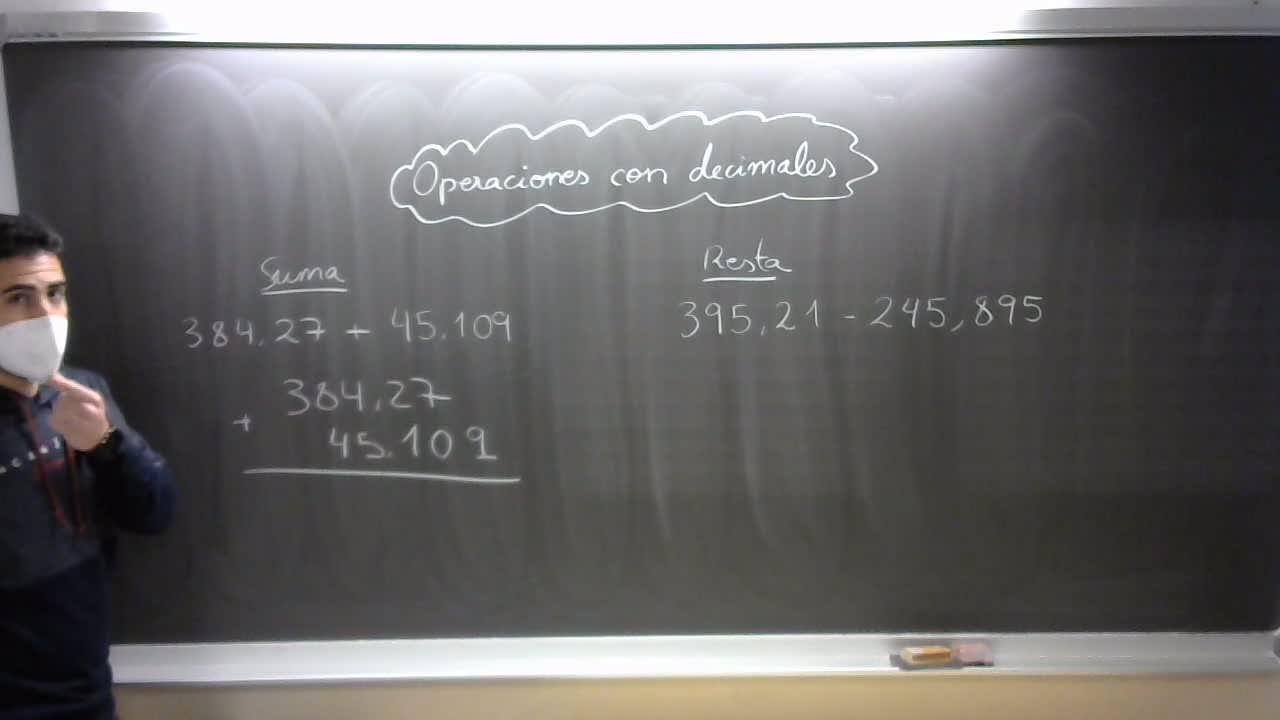 Operaciones con decimales
Suma
384,27 + 45.109
384,27
+
45.109
Resta
395,21 - 245,895